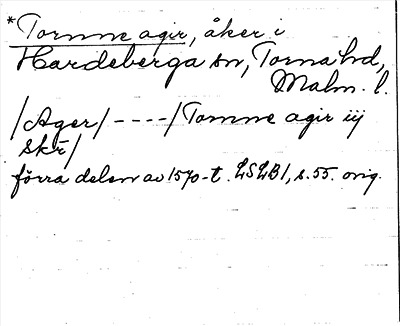 *Tomme agir, åker i
Hardeberga sn, Torna hd,
Malm. l.
/Ager/ ----/Tomme agir iij
skr/
förra delen av 1570-t. LSLB1, s. 55. orig.